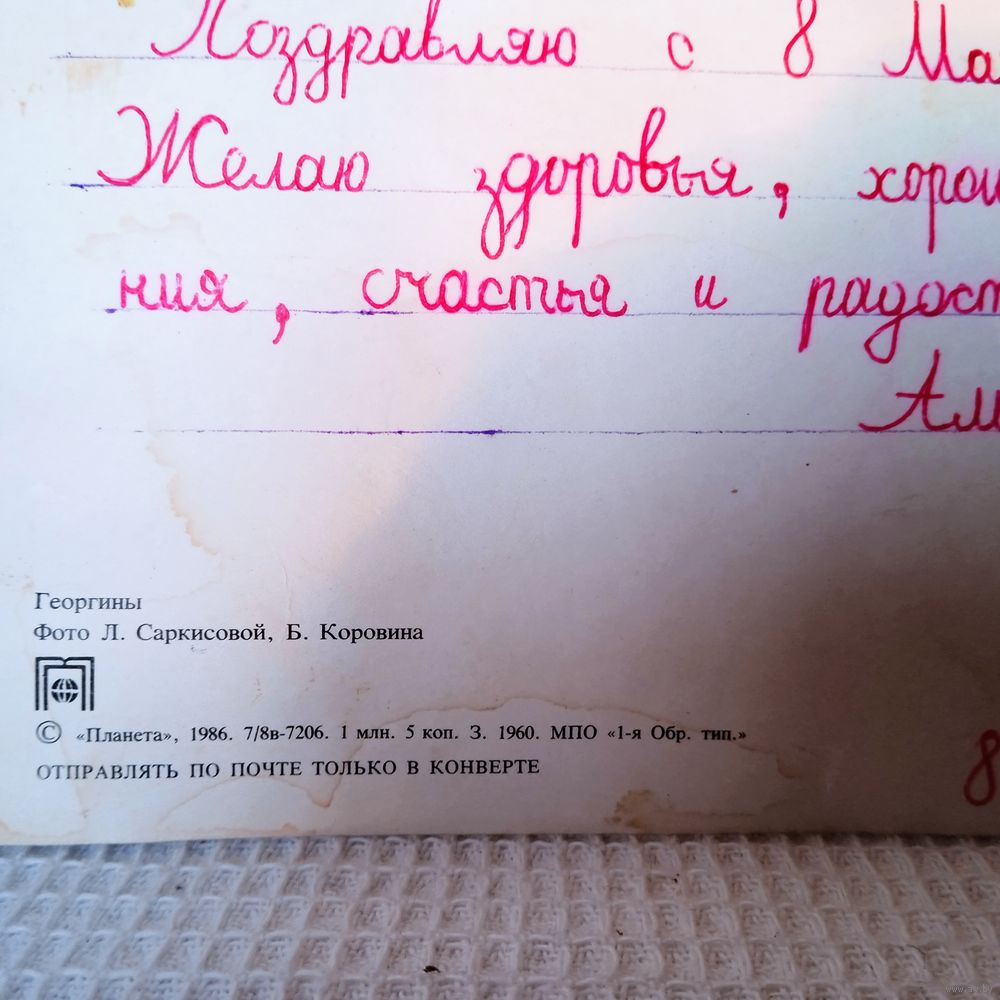 Поздравляю с 8 Ма
Желаю здоровья, хорош
ния, счастья и радост
Георгины
Фото Л. Саркисовой, Б. Коровина
© «Планета», 1986. 7/8в-7206. 1 млн. 5 коп. З. 1960. МПО «1-я Обр. тип.»
ОТПРАВЛЯТЬ ПО ПОЧТЕ ТОЛЬКО В КОНВЕРТЕ
8
www.ay.by